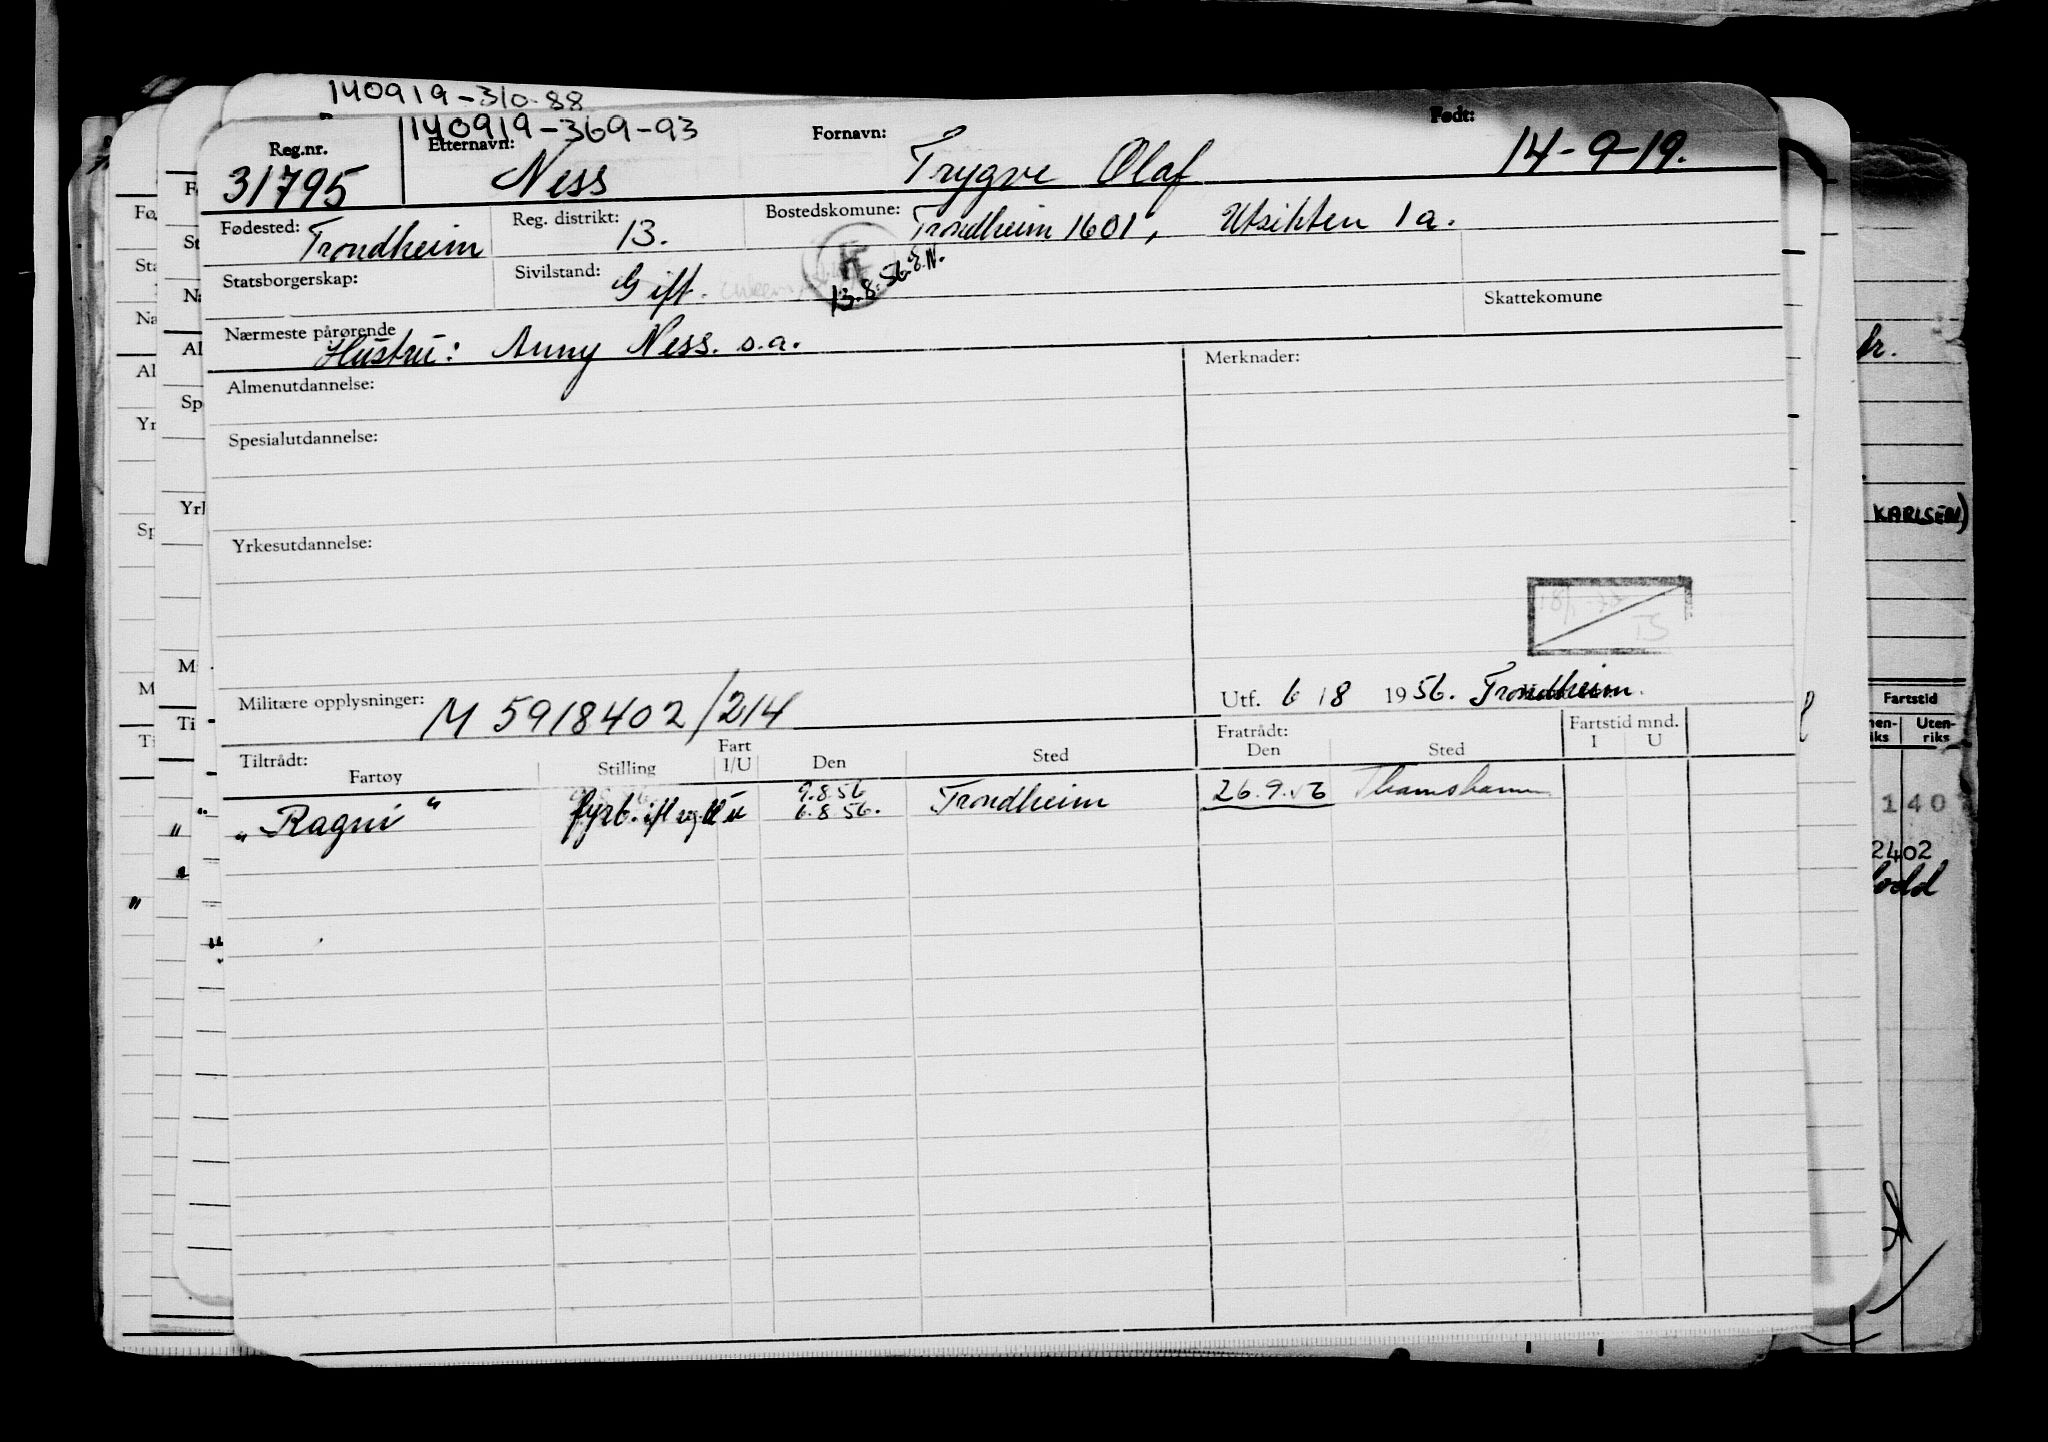 140919-310-88
140919-369-93
Reg.nr. Etternavn: Fornavn: Født:
31795 Ness Trygve Olaf 14-9-19.
Fødested: Trondheim Reg. distrikt: 13. Bostedskomune: Trondheim 1601, Utsikten 1a.
Statsborgerskap: Sivilstand: Gift. 13.8.56. Skattekomune
Nærmeste pårørende
Hustru: Anny Ness. s.a.
Almenutdannelse: Merknader:
Spesialutdannelse:
Yrkesutdannelse:
Militære opplysninger: M 5918402/214 Utf. 6 / 8 1956. Trondheim.
Tiltrådt: Fratrådt: Fartstid mnd.
Fartøy Stilling Fart I/U Den Sted Den Sted I U
9.8.56
"Ragni" fyrb. 6.8 56. Trondheim 26.9.56 Thamshamn
KARLSEN)
Fartstid
Uten-
riks
140
2402